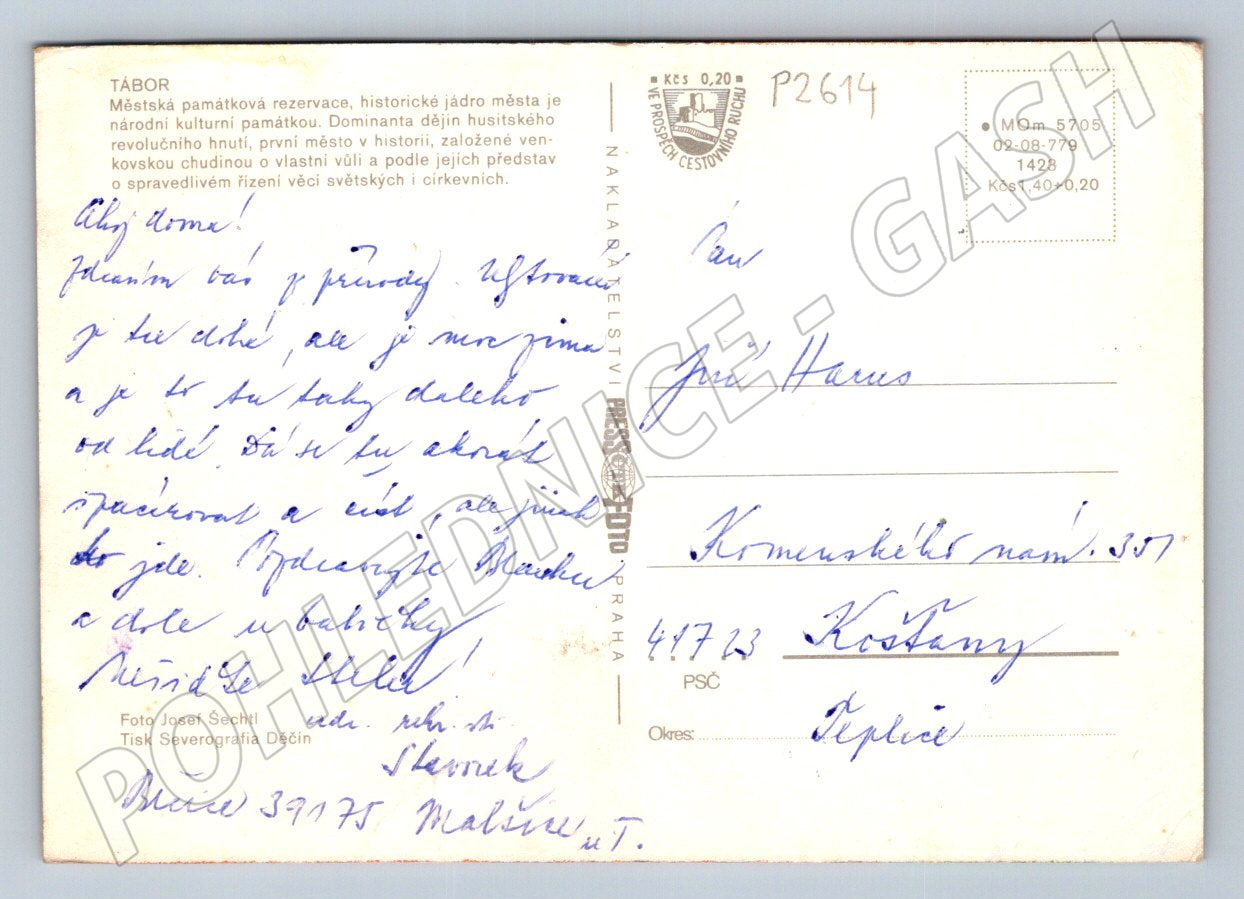 TÁBOR
Městská památková rezervace, historické jádro města je
národní kulturní památkou. Dominanta dějin husitského
revolučního hnutí, první město v historii, založené ven-
kovskou chudinou o vlastní vůli a podle jejích představ
o spravedlivém řízení věcí světských i církevních.
Ahoj doma!
Zdravím vás z přírody. Ubytování
je tu dobré, ale je moc zima
a je to tu taky daleko
od lidí. Dá se tu akorát
špacírovat a číst, ale jinak
to jde. Pozdravujte Blanku
a dole u babičky
adr. rekr. stř.
Slavonek
39175 Malšice u T.
Foto Josef Šechtl
Tisk Severografia Děčín
NAKLADATELSTVÍ PRESSFOTO PRAHA
Kčs 0,20
VE PROSPĚCH CESTOVNÍHO RUCHU
P2614
MOm 5705
02-08-779
1428
Kčs1,40+0,20
Pan
Jiří Harus
Komenského nám. 351
41723 Košťany
PSČ
Okres: Teplice
POHLEDNICE - GASH